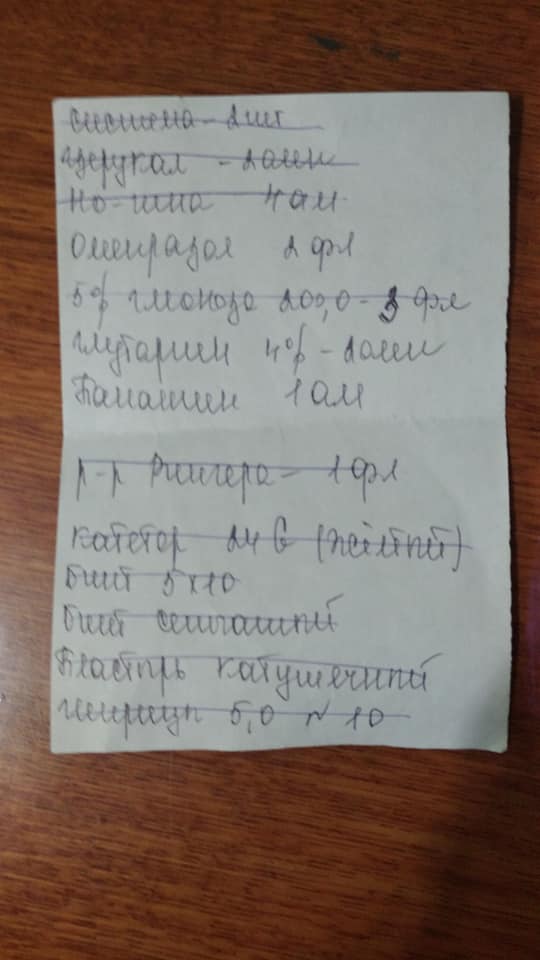 система - 2шт
Церукал - 2амп
Но-шпа 4ам
Омепразол 2 фл
5% глюкоза 200,0 - 3 фл
глутаргин 4% - 2амп
Папаверин 1 ам
р-р Рингера - 1 фл
катетер 24 G (жёлтый)
бинт 5х10
бинт
Пластырь катушечный
шприцы 5,0 №10